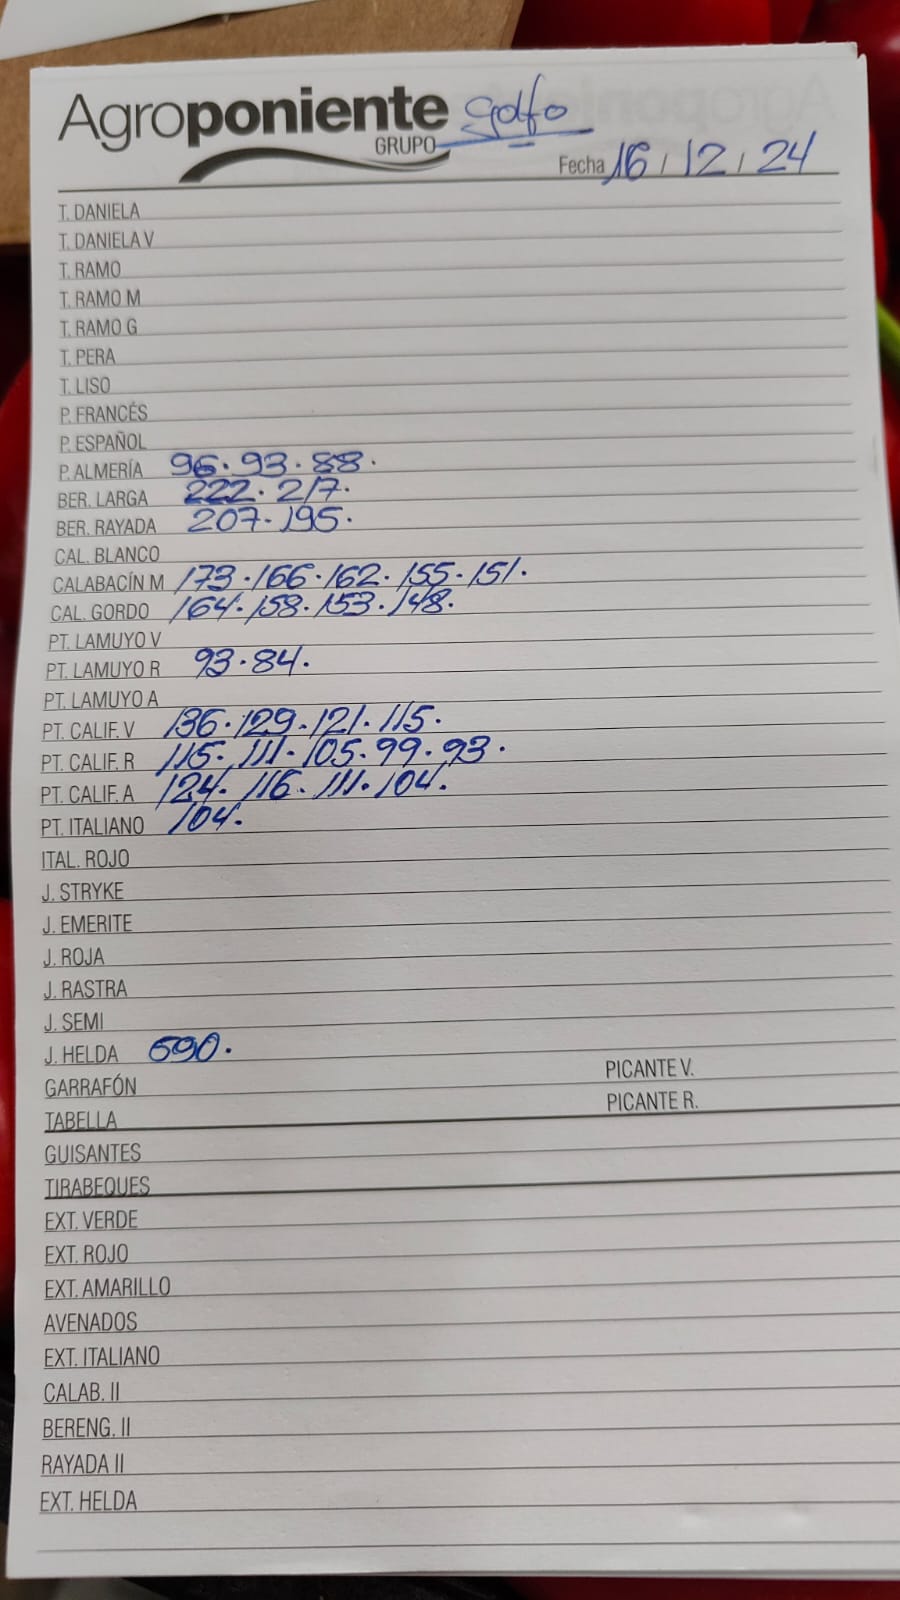 Agroponiente golfo
GRUPO
Fecha 16/12/24
T. DANIELA
T. DANIELA V
T. RAMO
T. RAMO M
T. RAMO G
T. PERA
T. LISO
P. FRANCÉS
P. ESPAÑOL
P. ALMERÍA 96. 93. 88.
BER. LARGA 222. 217.
BER. RAYADA 207. 195.
CAL. BLANCO
CALABACÍN M 173. 166. 162. 155. 151.
CAL. GORDO 164. 158. 153. 148.
PT. LAMUYO V
PT. LAMUYO R 93. 84.
PT. LAMUYO A
PT. CALIF. V 136. 129. 121. 115.
PT. CALIF. R 115. 111. 105. 99. 93.
PT. CALIF. A 124. 116. 111. 104.
PT. ITALIANO 104.
ITAL. ROJO
J. STRYKE
J. EMERITE
J. ROJA
J. RASTRA
J. SEMI
J. HELDA 690.
GARRAFÓN PICANTE V.
TABELLA PICANTE R.
GUISANTES
TIRABEQUES
EXT. VERDE
EXT. ROJO
EXT. AMARILLO
AVENADOS
EXT. ITALIANO
CALAB. II
BERENG. II
RAYADA II
EXT. HELDA